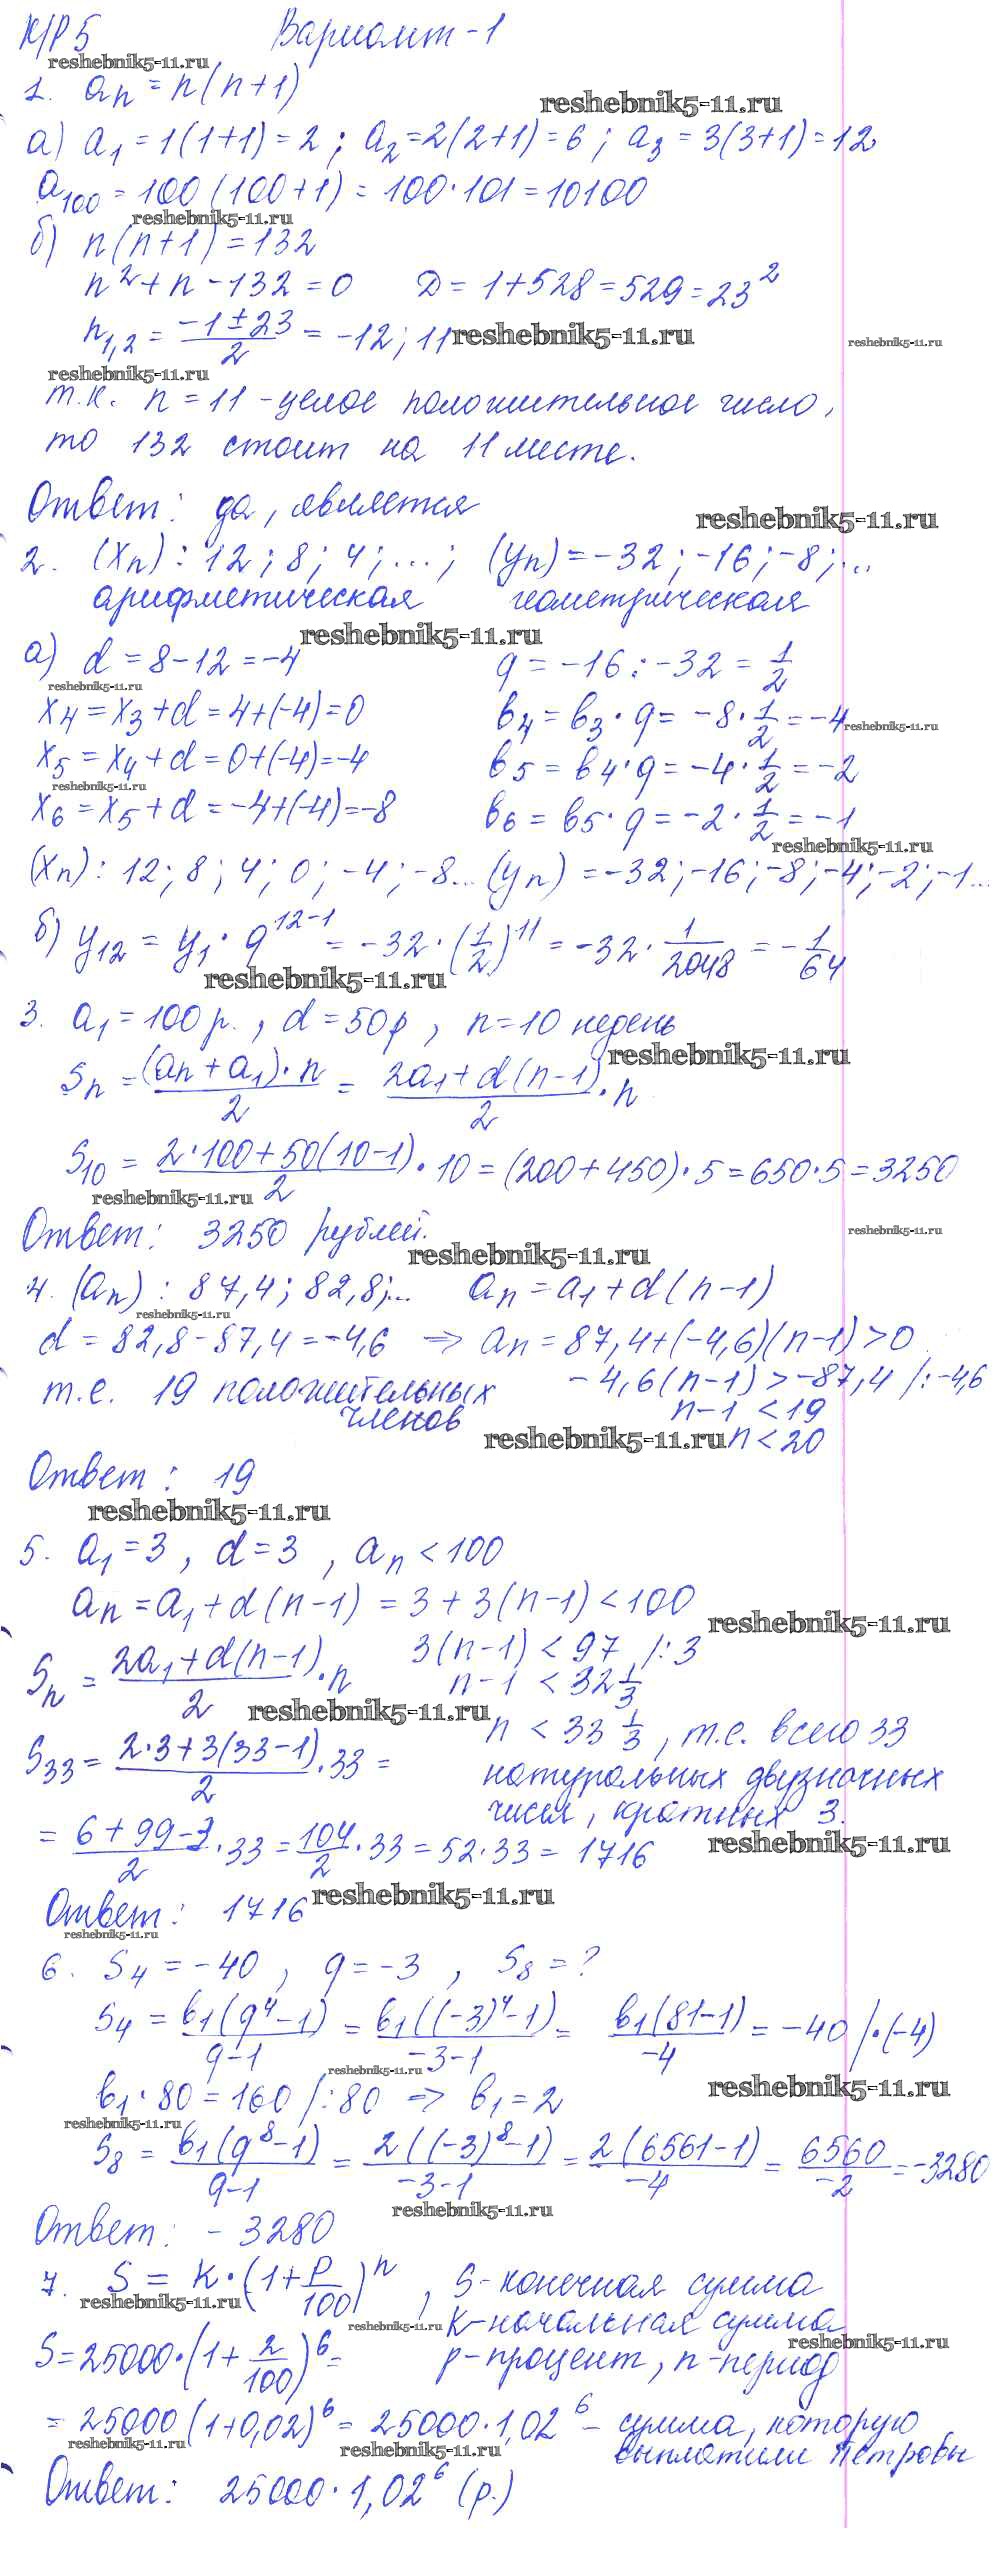 К/Р 5 Вариант-1
reshebnik5-11.ru
1. an = n(n+1)
reshebnik5-11.ru
а) a1 = 1(1+1) = 2 ; a2 = 2(2+1) = 6 ; a3 = 3(3+1) = 12
a100 = 100(100+1) = 100·101 = 10100
reshebnik5-11.ru
б) n(n+1) = 132
n²+n-132 = 0 D = 1+528 = 529 = 23²
n1,2 = (-1±23)/2 = -12; 11
reshebnik5-11.ru
reshebnik5-11.ru
reshebnik5-11.ru
т.к. n = 11 - целое положительное число,
то 132 стоит на 11 месте.
Ответ: да, является
reshebnik5-11.ru
2. (xn): 12; 8; 4; ...; (yn) = -32; -16; -8; ...
арифметическая геометрическая
reshebnik5-11.ru
а) d = 8-12 = -4 q = -16 : -32 = 1/2
reshebnik5-11.ru
x4 = x3+d = 4+(-4) = 0 b4 = b3·q = -8·1/2 = -4
reshebnik5-11.ru
x5 = x4+d = 0+(-4) = -4 b5 = b4·q = -4·1/2 = -2
reshebnik5-11.ru
x6 = x5+d = -4+(-4) = -8 b6 = b5·q = -2·1/2 = -1
reshebnik5-11.ru
(xn): 12; 8; 4; 0; -4; -8... (yn) = -32; -16; -8; -4; -2; -1...
б) y12 = y1·q^(12-1) = -32·(1/2)^11 = -32·1/2048 = -1/64
reshebnik5-11.ru
3. a1 = 100р., d = 50р, n = 10 недель
reshebnik5-11.ru
Sn = (an+a1)·n/2 = (2a1+d(n-1))/2·n
S10 = (2·100+50(10-1))/2·10 = (200+450)·5 = 650·5 = 3250
reshebnik5-11.ru
Ответ: 3250 рублей.
reshebnik5-11.ru
reshebnik5-11.ru
4. (an): 87,4; 82,8;... an = a1+d(n-1)
reshebnik5-11.ru
d = 82,8-87,4 = -4,6 ⇒ an = 87,4+(-4,6)(n-1) > 0
т.е. 19 положительных -4,6(n-1) > -87,4 /:-4,6
членов n-1 < 19
reshebnik5-11.ru n < 20
Ответ: 19
reshebnik5-11.ru
5. a1 = 3, d = 3, an < 100
an = a1+d(n-1) = 3+3(n-1) < 100
reshebnik5-11.ru
Sn = (2a1+d(n-1))/2·n 3(n-1) < 97 /:3
n-1 < 32 1/3
reshebnik5-11.ru
n < 33 1/3, т.е. всего 33
S33 = (2·3+3(33-1))/2·33 = натуральных двузначных
числа, кратных 3.
= (6+99-3)/2·33 = 104/2·33 = 52·33 = 1716
reshebnik5-11.ru
Ответ: 1716
reshebnik5-11.ru
reshebnik5-11.ru
6. S4 = -40, q = -3, S8 = ?
S4 = b1(q⁴-1)/(q-1) = b1((-3)⁴-1)/(-3-1) = b1(81-1)/-4 = -40 /·(-4)
reshebnik5-11.ru
b1·80 = 160 /:80 ⇒ b1 = 2
reshebnik5-11.ru
reshebnik5-11.ru
S8 = b1(q⁸-1)/(q-1) = 2((-3)⁸-1)/(-3-1) = 2(6561-1)/-4 = 6560/-2 = -3280
reshebnik5-11.ru
Ответ: -3280
7. S = K·(1+P/100)^n, S-конечная сумма
reshebnik5-11.ru
K-начальная сумма
reshebnik5-11.ru
reshebnik5-11.ru
S = 25000·(1+2/100)^6 = p-процент, n-период
= 25000(1+0,02)^6 = 25000·1,02^6 - сумма, которую
reshebnik5-11.ru
reshebnik5-11.ru
выплатили Петровы
Ответ: 25000·1,02^6 (р.)